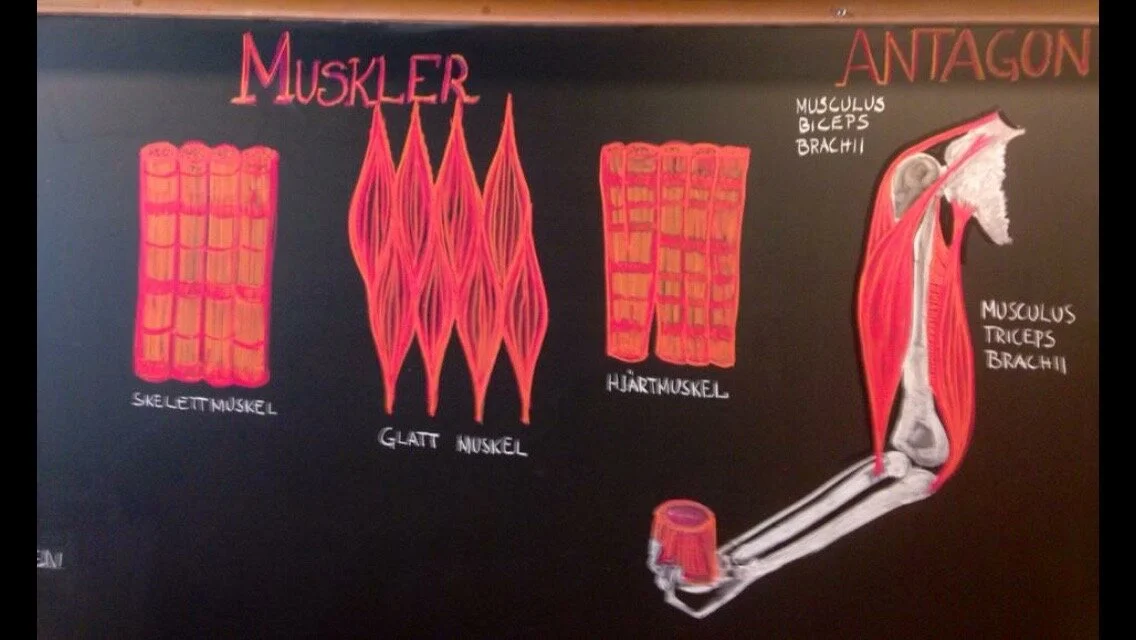 MUSKLER
ANTAGON
MUSCULUS
BICEPS
BRACHII
MUSCULUS
TRICEPS
BRACHII
SKELETTMUSKEL
GLATT MUSKEL
HJÄRTMUSKEL